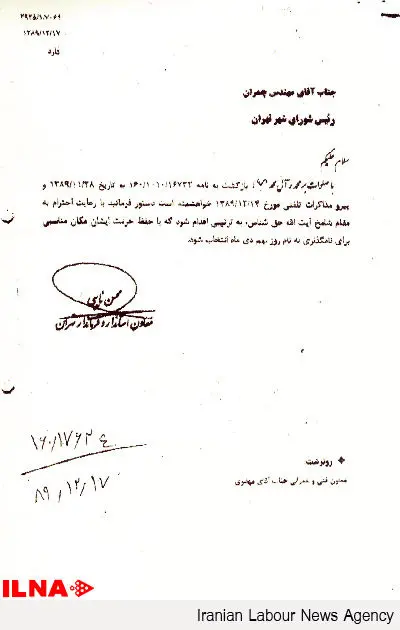 ۲۹۲۵/۱/۷۰۶۹
۱۳۸۹/۱۲/۱۷
دارد
جناب آقای مهندس چمران
رئیس شورای شهر تهران
سلام علیکم
با صلوات بر محمد و آل محمد بازگشت به نامه ۱۶۰/۱۰۱۰/۱۶۷۳۲ به تاریخ ۱۳۸۹/۱۱/۲۸ و
پیرو مذاکرات تلفنی مورخ ۱۳۸۹/۱۲/۱۴ خواهشمند است دستور فرمائید با رعایت احترام به
مقام شامخ آیت الله حق شناس، به ترتیبی اقدام شود که با حفظ حرمت ایشان مکان مناسبی
برای نامگذاری به نام روز نهم دی ماه انتخاب شود.
محسن نایبی
معاون استاندار و فرماندار تهران
۱۶۰/۱۷۶۲۴
۸۹/۱۲/۱۷
❖ رونوشت
معاون فنی و عمرانی جناب آقای مهدوی
ILNA
Iranian Labour News Agency